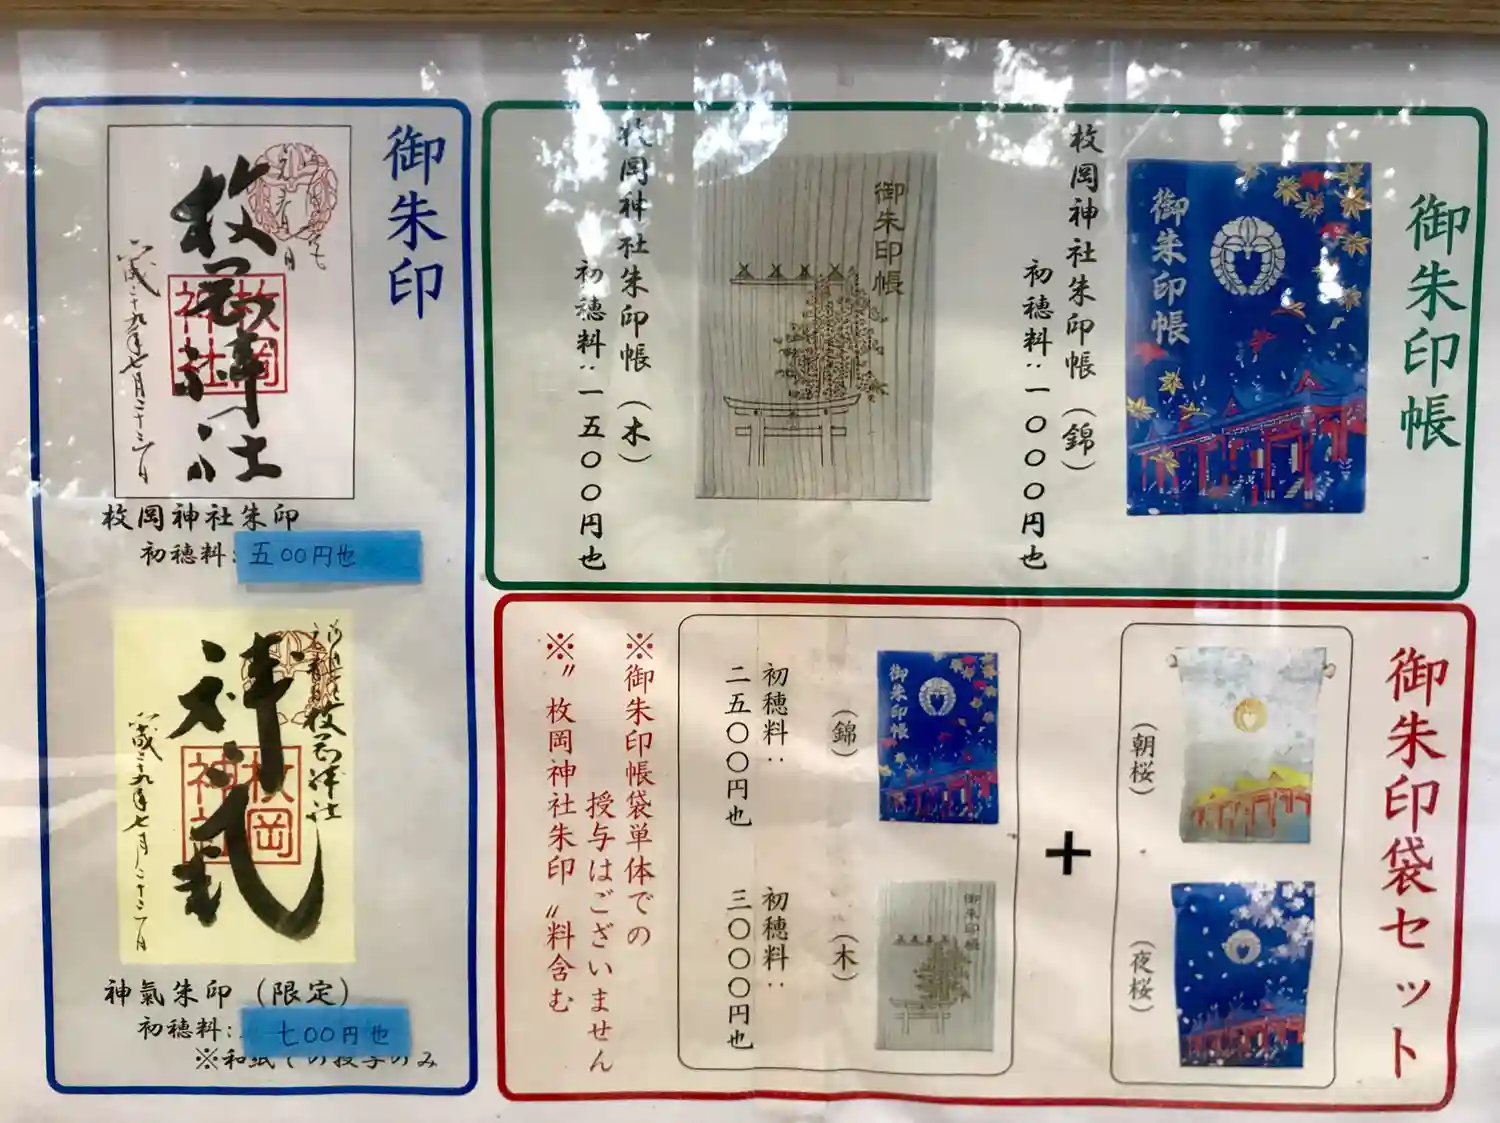 御朱印帳
御朱印帳
枚岡神社朱印帳(錦)
初穂料:一〇〇〇円也
御朱印帳
枚岡神社朱印帳(木)
初穂料:一五〇〇円也
御朱印
枚岡神社
枚岡神社
平成二十九年七月二十三日
枚岡神社朱印
初穂料:五00円也
枚岡神社
神氣
枚岡神社
平成二十九年七月二十三日
神氣朱印(限定)
初穂料:七00円也
※和紙での授与のみ
御朱印袋セット
(朝桜)
(夜桜)
+
御朱印帳
(錦)
初穂料:
二五〇〇円也
御朱印帳
(木)
初穂料:
三〇〇〇円也
※御朱印帳袋単体での
授与はございません
※〝枚岡神社朱印〟料含む